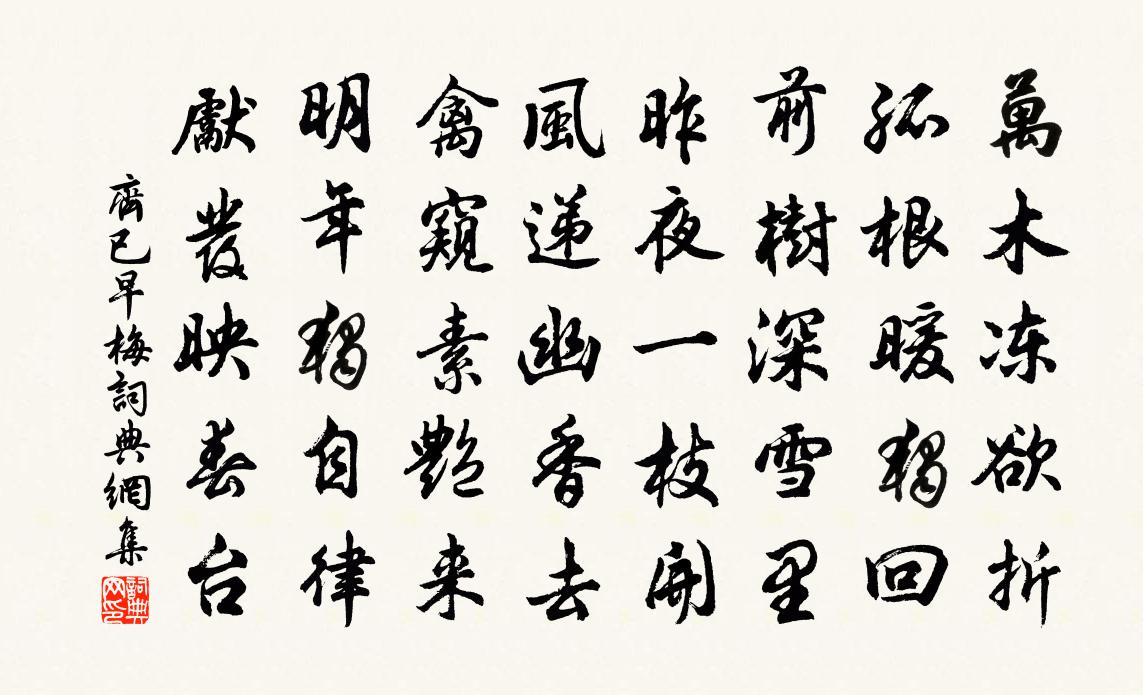 萬木冻欲折
孤根暖獨回
前樹深雪里
昨夜一枝開
風递幽香去
禽窺素艷来
明年獨自律
獻發映春台
齊已早梅詞典網集
詞典网印